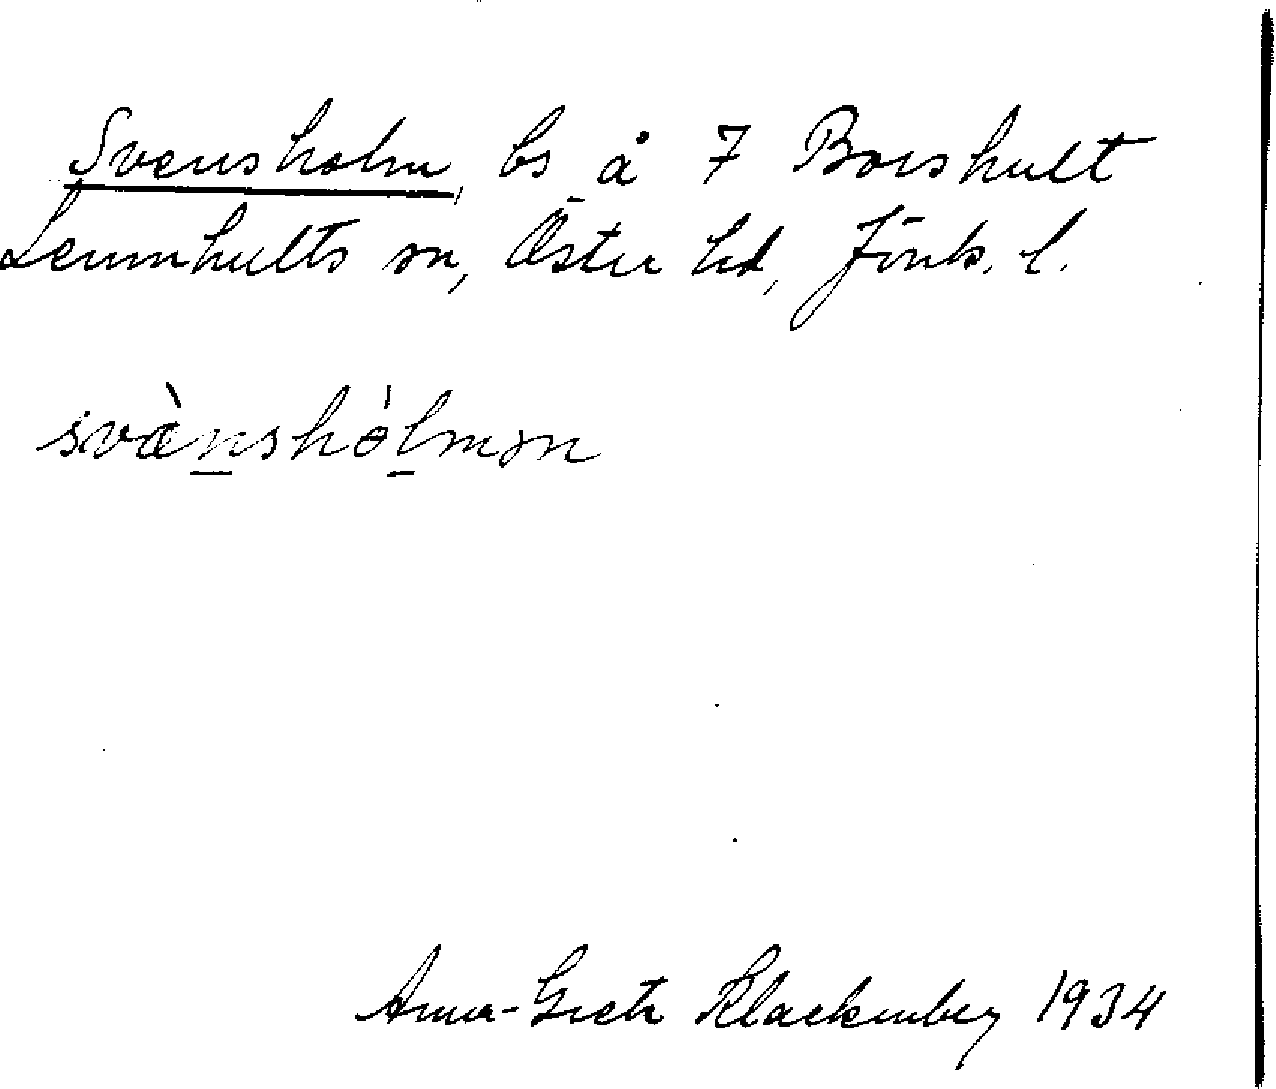 Svensholm, bs å 7 Boeshult
Lemnhults sn, Öster hd, Jönk. l.
svæ̀nshólmən
Anna-Greta Klackenberg 1934